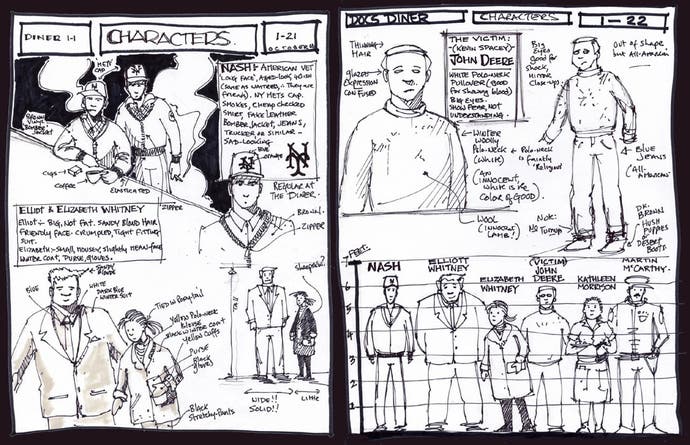 DINER 1-1
CHARACTERS.
1-21
OCTOBER
METS CAP
NASH: AMERICAN VET
LONG FACE, AGED-LOOK, 40ISH
(SAME AS WAITRESS, THEY ARE
FRIENDS). NY METS CAP.
SMOKES, CHEAP CHECKED
SHIRT, FAKE LEATHER
BOMBER JACKET, JEANS,
TRUCKER OR SIMILAR -
SAD-LOOKING
BROWN
VINYL
BOMBER
JACKET
CUPS
COFFEE
ELASTICATED
ZIPPER
NY
REGULAR AT
THE DINER.
BROWN
ZIPPER
ELLIOT & ELIZABETH WHITNEY
ELLIOT - BIG, NOT FAT. SANDY BLOND HAIR
FRIENDLY FACE - CRUMPLED, TIGHT FITTING
SUIT.
ELIZABETH - SMALL, MOUSEY, SLIGHTLY MEAN-FACE
WINTER COAT, PURSE, GLOVES.
SANDY
BLONDE
BLUE
WHITE
DARK BLUE
WINTER SUIT
TIED IN PONYTAIL
YELLOW POLO-NECK
BLOUSE
BLACK WINTER COAT
YELLOW CUFFS
PURSE
BLACK
GLOVES
BLACK
STRETCHY-PANTS
TALL
WIDE!!
SOLID!!
LITTLE
DOCS DINER
CHARACTERS
1-22
THINNING
HAIR
GLAZED
EXPRESSION
CONFUSED
THE VICTIM:
(KEVIN SPACEY)
JOHN DEERE
WHITE POLO-NECK
PULLOVER (GOOD
FOR SHOWING BLOOD)
BIG EYES.
SHOW FEAR, NOT
UNDERSTANDING.
BIG
EYES
GOOD
FOR
SHOCK,
MIRROR
CLOSE-UP
OUT OF SHAPE
BUT ALL-AMERICAN
WINTER
WOOLY
POLO-NECK
(WHITE)
POLO-NECK
IS FAINTLY
'RELIGIOUS'
(AN
INNOCENT,
WHITE IS THE
COLOR OF GOOD)
WOOL
(INNOCENT
LAMB!)
BLUE
JEANS
(ALL-
AMERICAN)
NOTE:
NO TUMOR
DK. BROWN
HUSH
PUPPIES
OR
DESERT
BOOTS
FEET.
6
5
4
3
2
1
NASH
ELLIOTT
WHITNEY
ELIZABETH
WHITNEY
(VICTIM)
JOHN
DEERE
KATHLEEN
MORRISON
MARTIN
McCARTHY